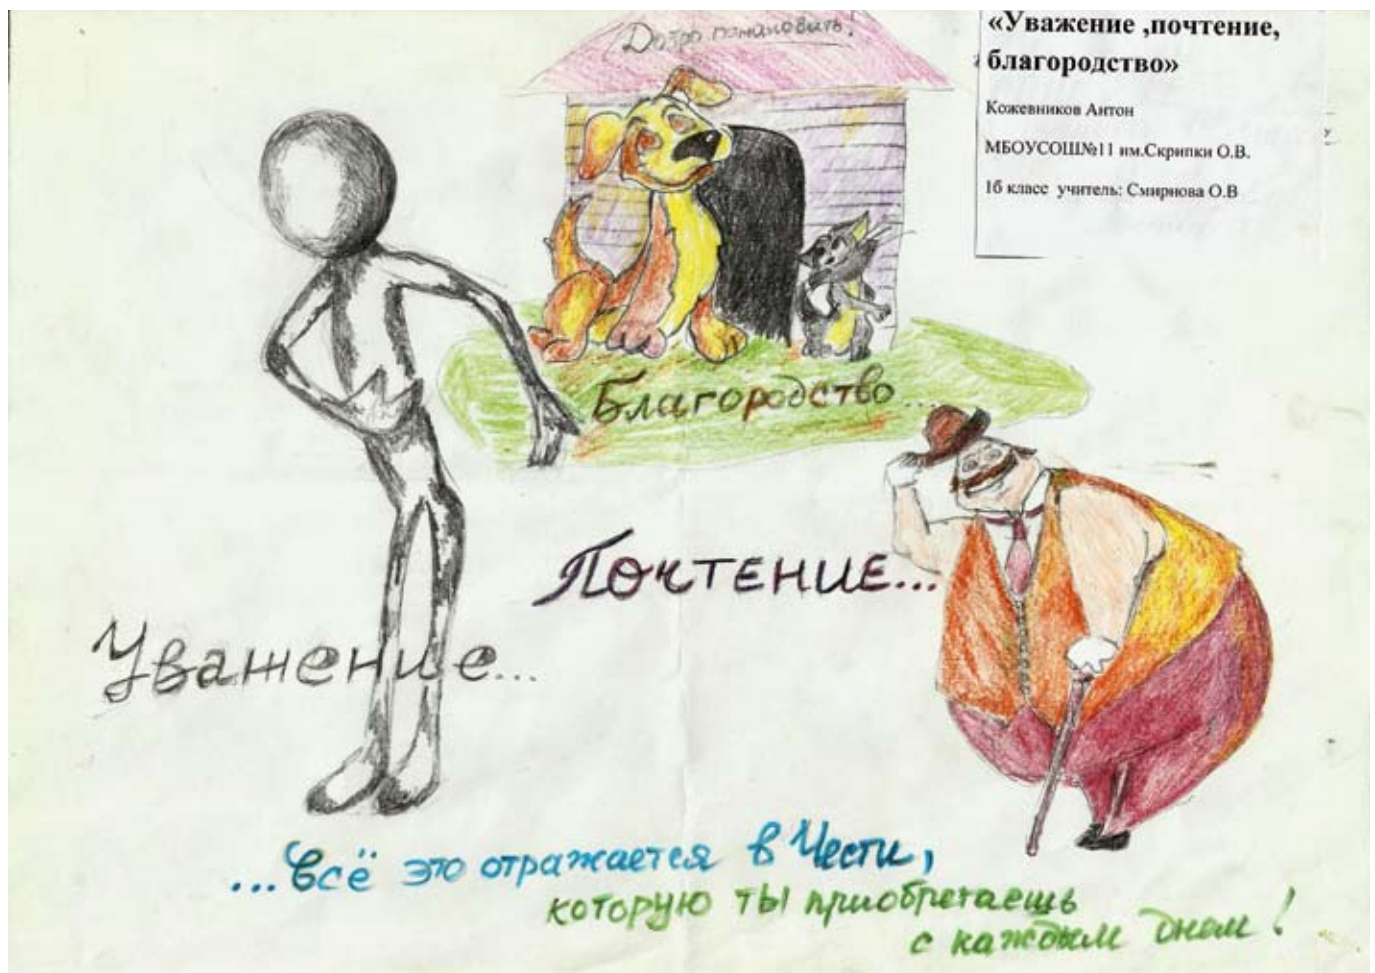 Добро пожаловать!
«Уважение ,почтение,
благородство»
Кожевников Антон
МБОУСОШ№11 им.Скрипки О.В.
1б класс учитель: Смирнова О.В
Благородство...
Почтение...
Уважение...
...всё это отражается в Чести,
которую ты приобретаешь
с каждым днем!